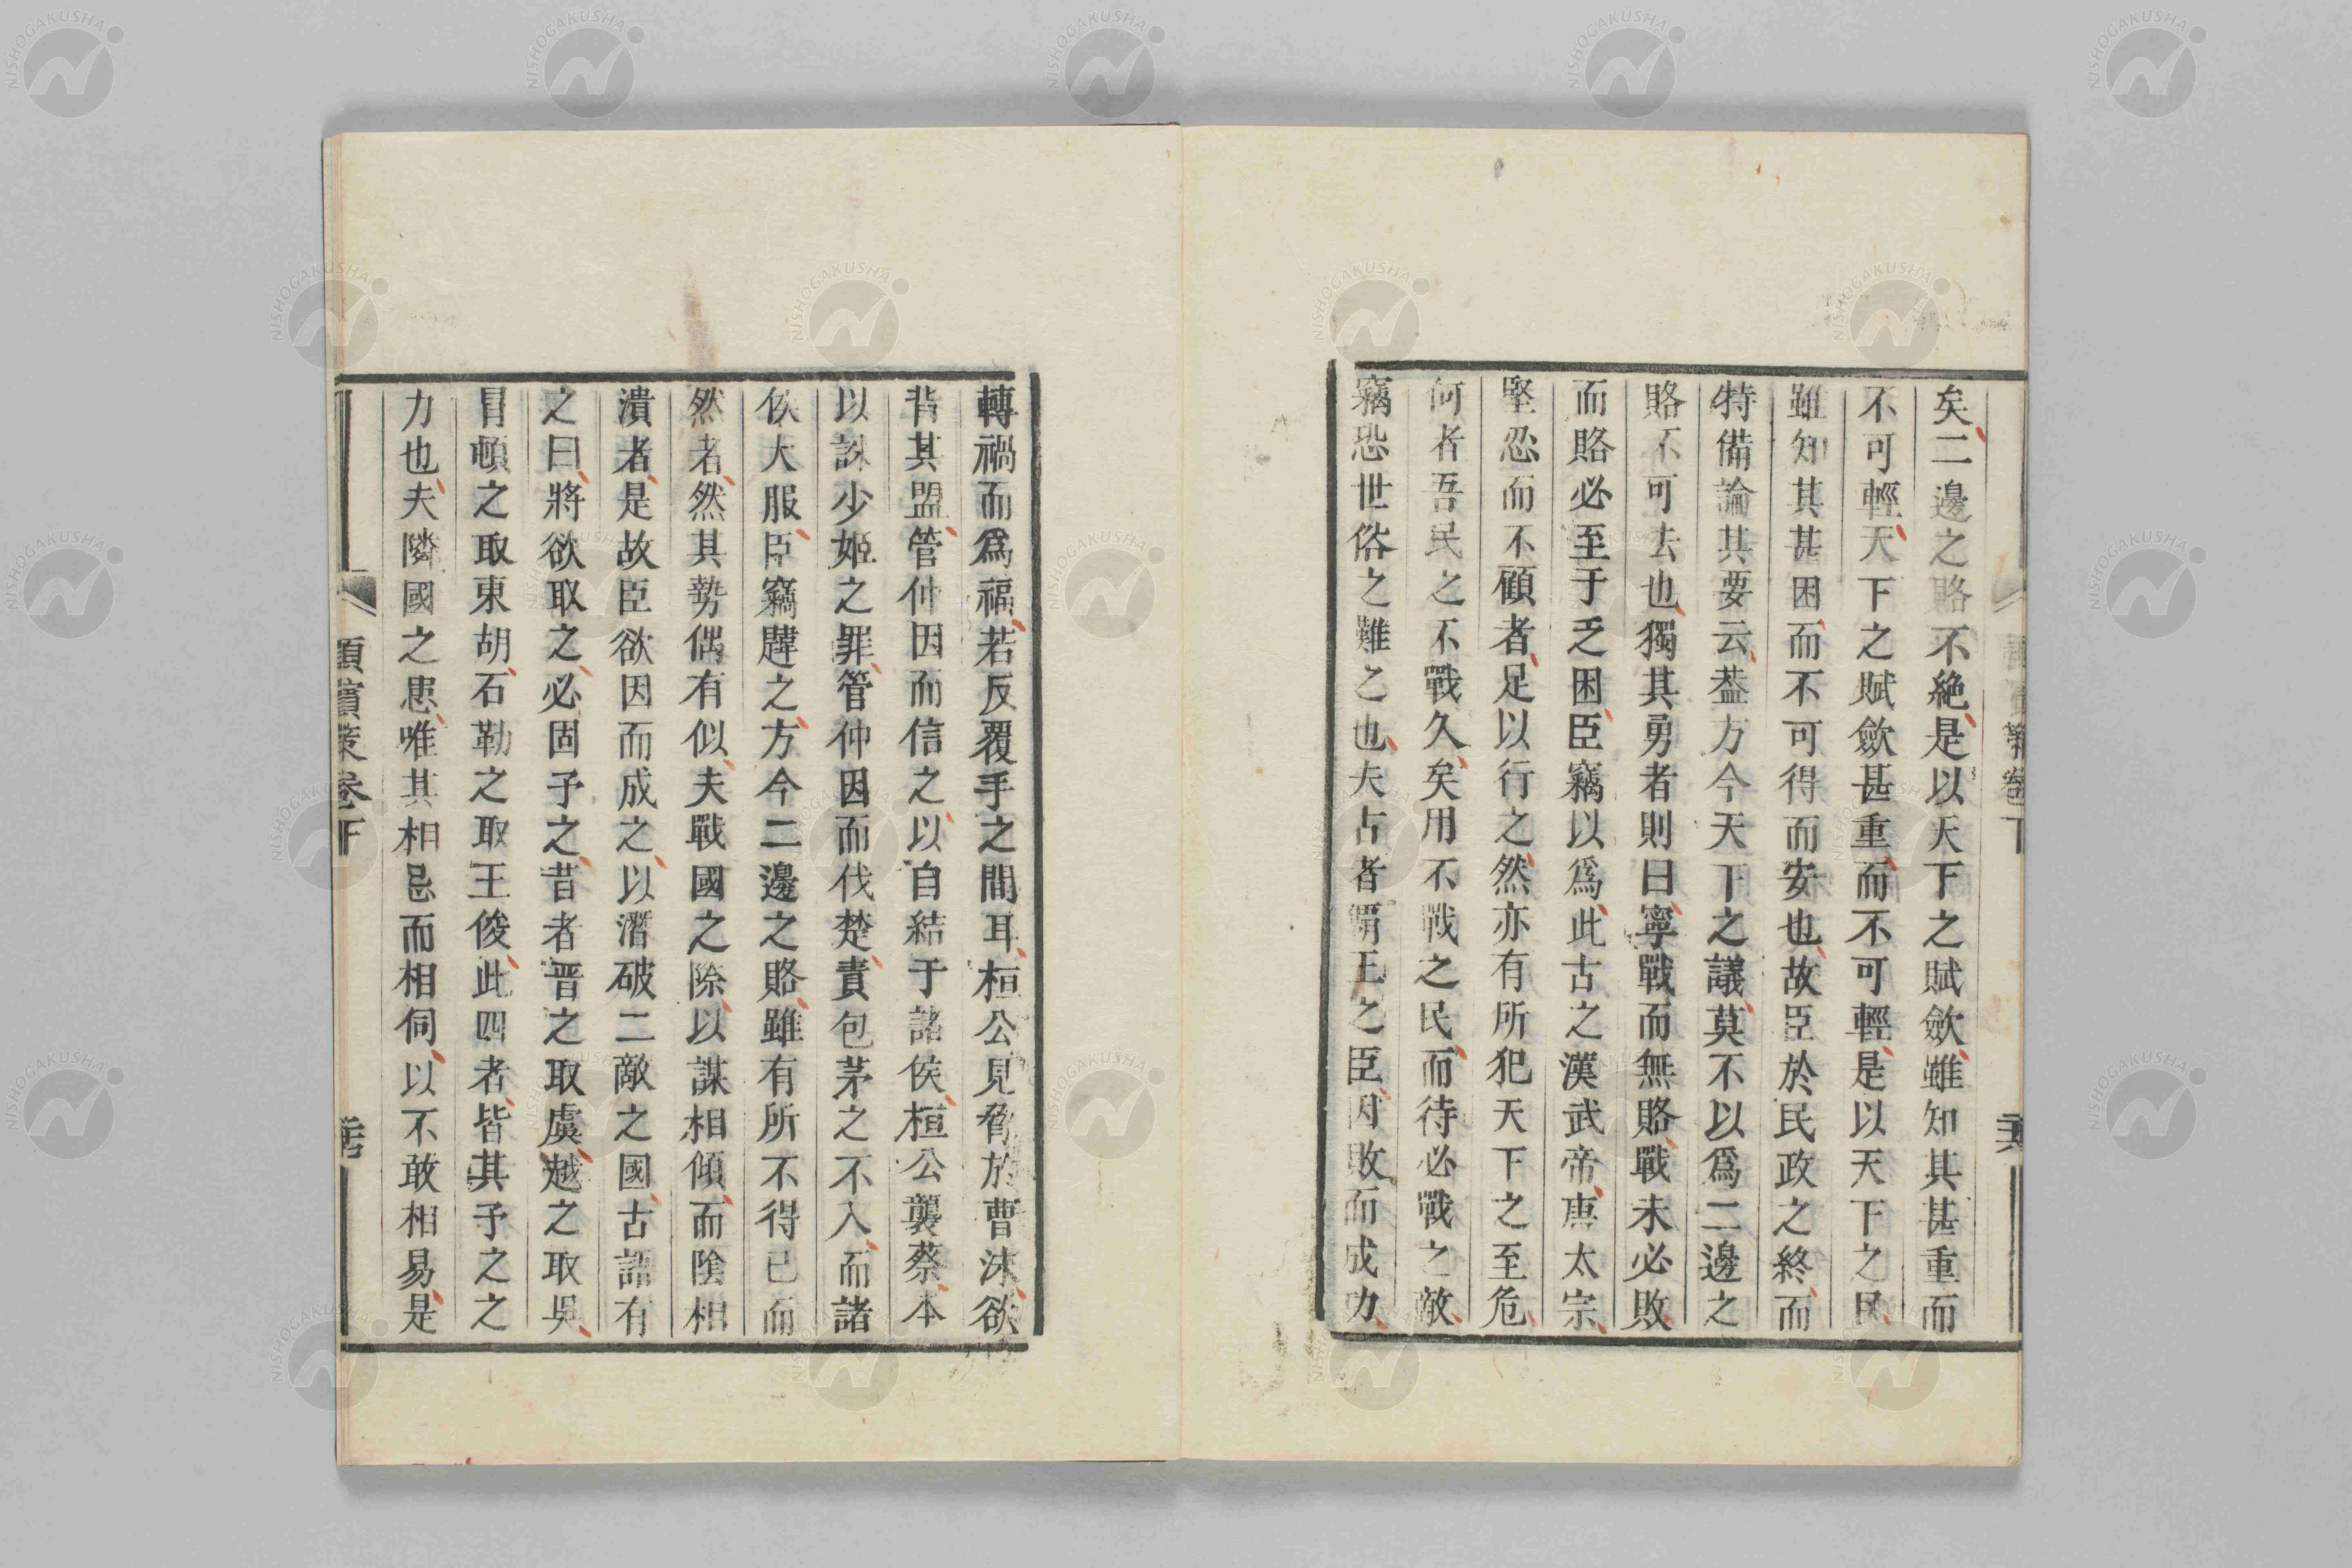 矣二邊之賂不絶是以天下之賦歛雖知其甚重而
不可輕天下之賦歛甚重而不可輕是以天下之民
雖知其甚困而不可得而安也故臣於民政之終而
特備論其要云葢方今天下之議莫不以爲二邊之
賂不可去也獨其勇者則曰寧戰而無賂戰未必敗
而賂必至于乏困臣竊以爲此古之漢武帝唐太宗
堅忍而不顧者足以行之然亦有所犯天下之至危
何者吾民之不戰久矣用不戰之民而待必戰之敵
竊恐世俗之難之也夫古者霸王之臣因敗而成力
轉禍而爲福若反覆手之間耳桓公見脅於曹沫欲
背其盟管仲因而信之以自結于諸侯桓公襲蔡本
以誅少姬之罪管仲因而伐楚責包茅之不入而諸
侯大服臣竊韙之方今二邊之賂雖有所不得已而
然者然其勢偶有似夫戰國之際以謀相傾而陰相
潰者是故臣欲因而成之以潛破二敵之國古語有
之曰將欲取之必固予之昔者晋之取虞越之取吳
冒頓之取東胡石勒之取王俊此四者皆其予之之
力也夫隣國之患唯其相忌而相伺以不敢相易是
頴濱策卷下
NISHOGAKUSHA